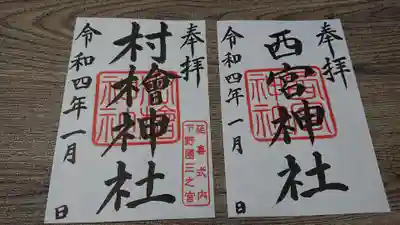 奉拝
村檜神社
延喜式内
下野國三之宮
令和四年一月
日
奉拝
西宮神社
令和四年一月
日